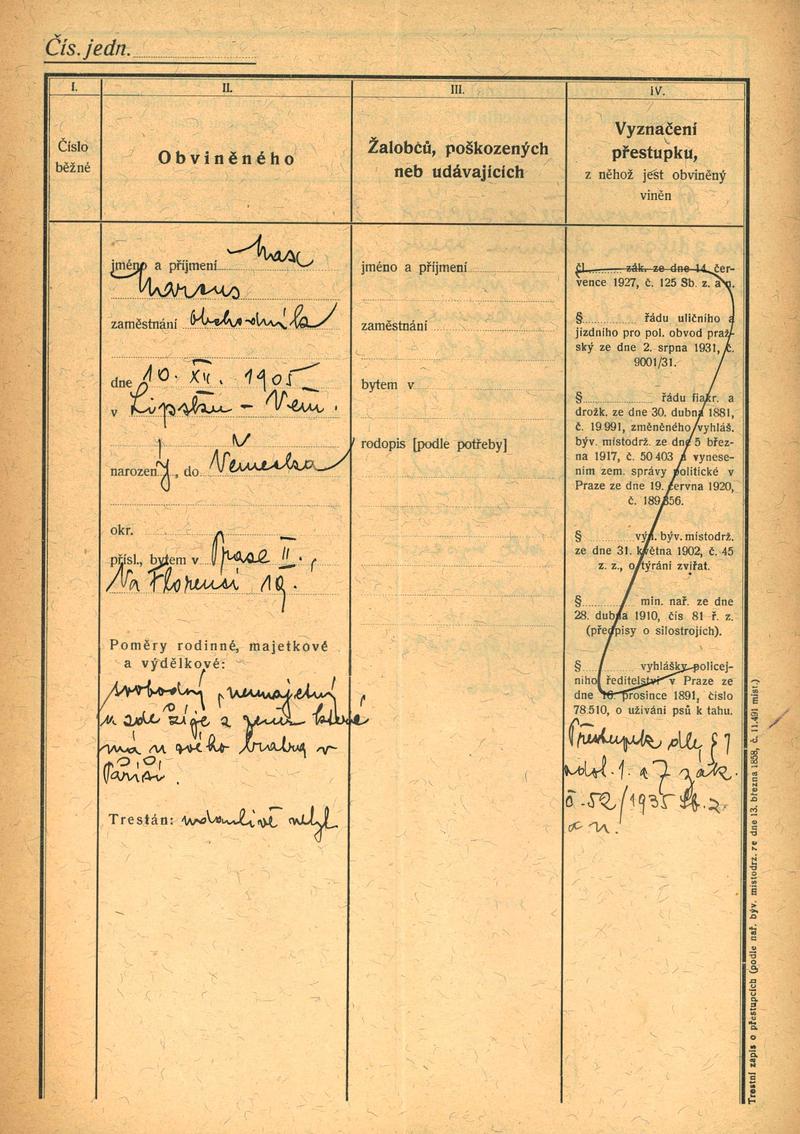 Čís. jedn.
I.
Číslo
běžné
II.
Obviněného
jméno a příjmení Max
Marcus
zaměstnání obchodník
dne 10. XII. 1905
v Lipsku - Něm.
narozený, do Německa
okr.
přísl., bytem v Praze II.,
Na Florenci 19.
Poměry rodinné, majetkové
a výdělkové:
svobodný, nemajetný
a zde žije z peněz které
má u svého bratra v
Paříži.
Trestán: udanlivě nebyl
III.
Žalobců, poškozených
neb udávajících
jméno a příjmení
zaměstnání
bytem v
rodopis [podle potřeby]
IV.
Vyznačení
přestupku,
z něhož jest obviněný
viněn
čl. zák. ze dne 14. čer-
vence 1927, č. 125 Sb. z. a n.
§ řádu uličního a
jízdního pro pol. obvod praž-
ský ze dne 2. srpna 1931, č.
9001/31.
§ řádu fiakr. a
drožk. ze dne 30. dubna 1881,
č. 19 991, změněného vyhláš.
býv. místodrž. ze dne 5 břez-
na 1917, č. 50 403 a vynese-
ním zem. správy politické v
Praze ze dne 19. června 1920,
č. 189 356.
§ vyn. býv. místodrž.
ze dne 31. května 1902, č. 45
z. z., o týrání zvířat.
§ min. nař. ze dne
28. dubna 1910, čís 81 ř. z.
(předpisy o silostrojích).
§ vyhlášky policej-
ního ředitelství v Praze ze
dne 16. prosince 1891, číslo
78.510, o užívání psů k tahu.
Přestupek dle §
odst. 1. a 7 zák.
č. 52/1935 Sb. z.
a n.
Trestní zápis o přestupcích (podle nař. býv. místodrz. ze dne 13. března 1858, č. 11.491 míst.)